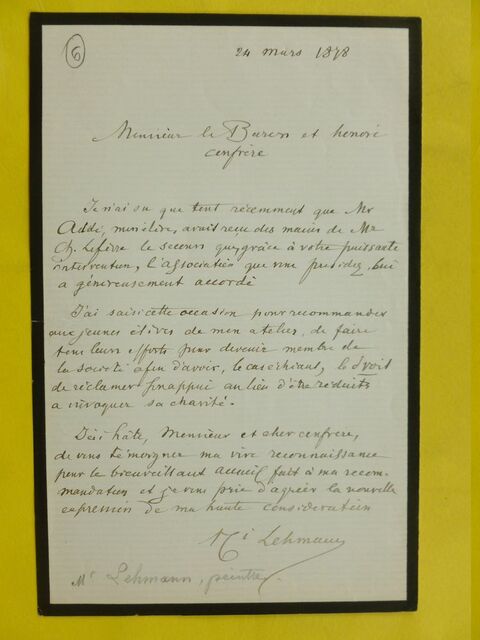 6
24 mars 1878
Monsieur le Baron et honoré
confrère
Je n'ai su que tout récemment que Mr
Addé, mon élève, avait reçu des mains de Mr
Ch. Lefèvre le secours que, grâce à votre puissante
intervention, l'association que vous présidez, lui
a généreusement accordé
J'ai saisi cette occasion pour recommander
aux jeunes élèves de mon atelier, de faire
tous leurs efforts pour devenir membre de
la société afin d'avoir, le cas échéant, le droit
de réclamer son appui au lieu d'être réduits
a invoquer sa charité.
J'ai hâte, Monsieur et cher confrère,
de vous témoigner ma vive reconnaissance
pour le bienveillant accueil fait à ma recom-
mandation et je vous prie d'agréer la nouvelle
expression de ma haute considération
Hi Lehmann
Mr Lehmann, peintre.